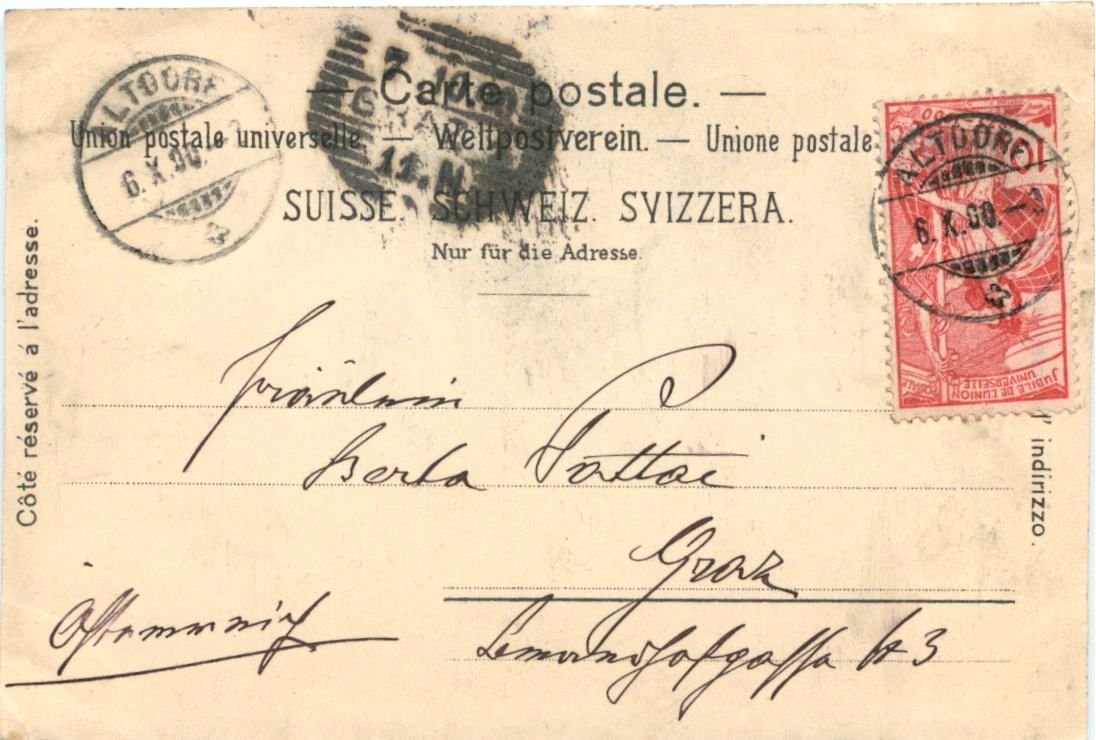 Carte postale.
Union postale universelle. — Weltpostverein. — Unione postale
SUISSE. SCHWEIZ. SVIZZERA.
Nur für die Adresse.
Côté réservé á l'adresse.
d'indirizzo.
ALTDORF
6.X.00.
ALTDORF
6.X.00.–3
JUBILÉ DE L'UNION
POSTALE
UNIVERSELLE
Fräulein
Berta Pottai
Graz
Österreich
3